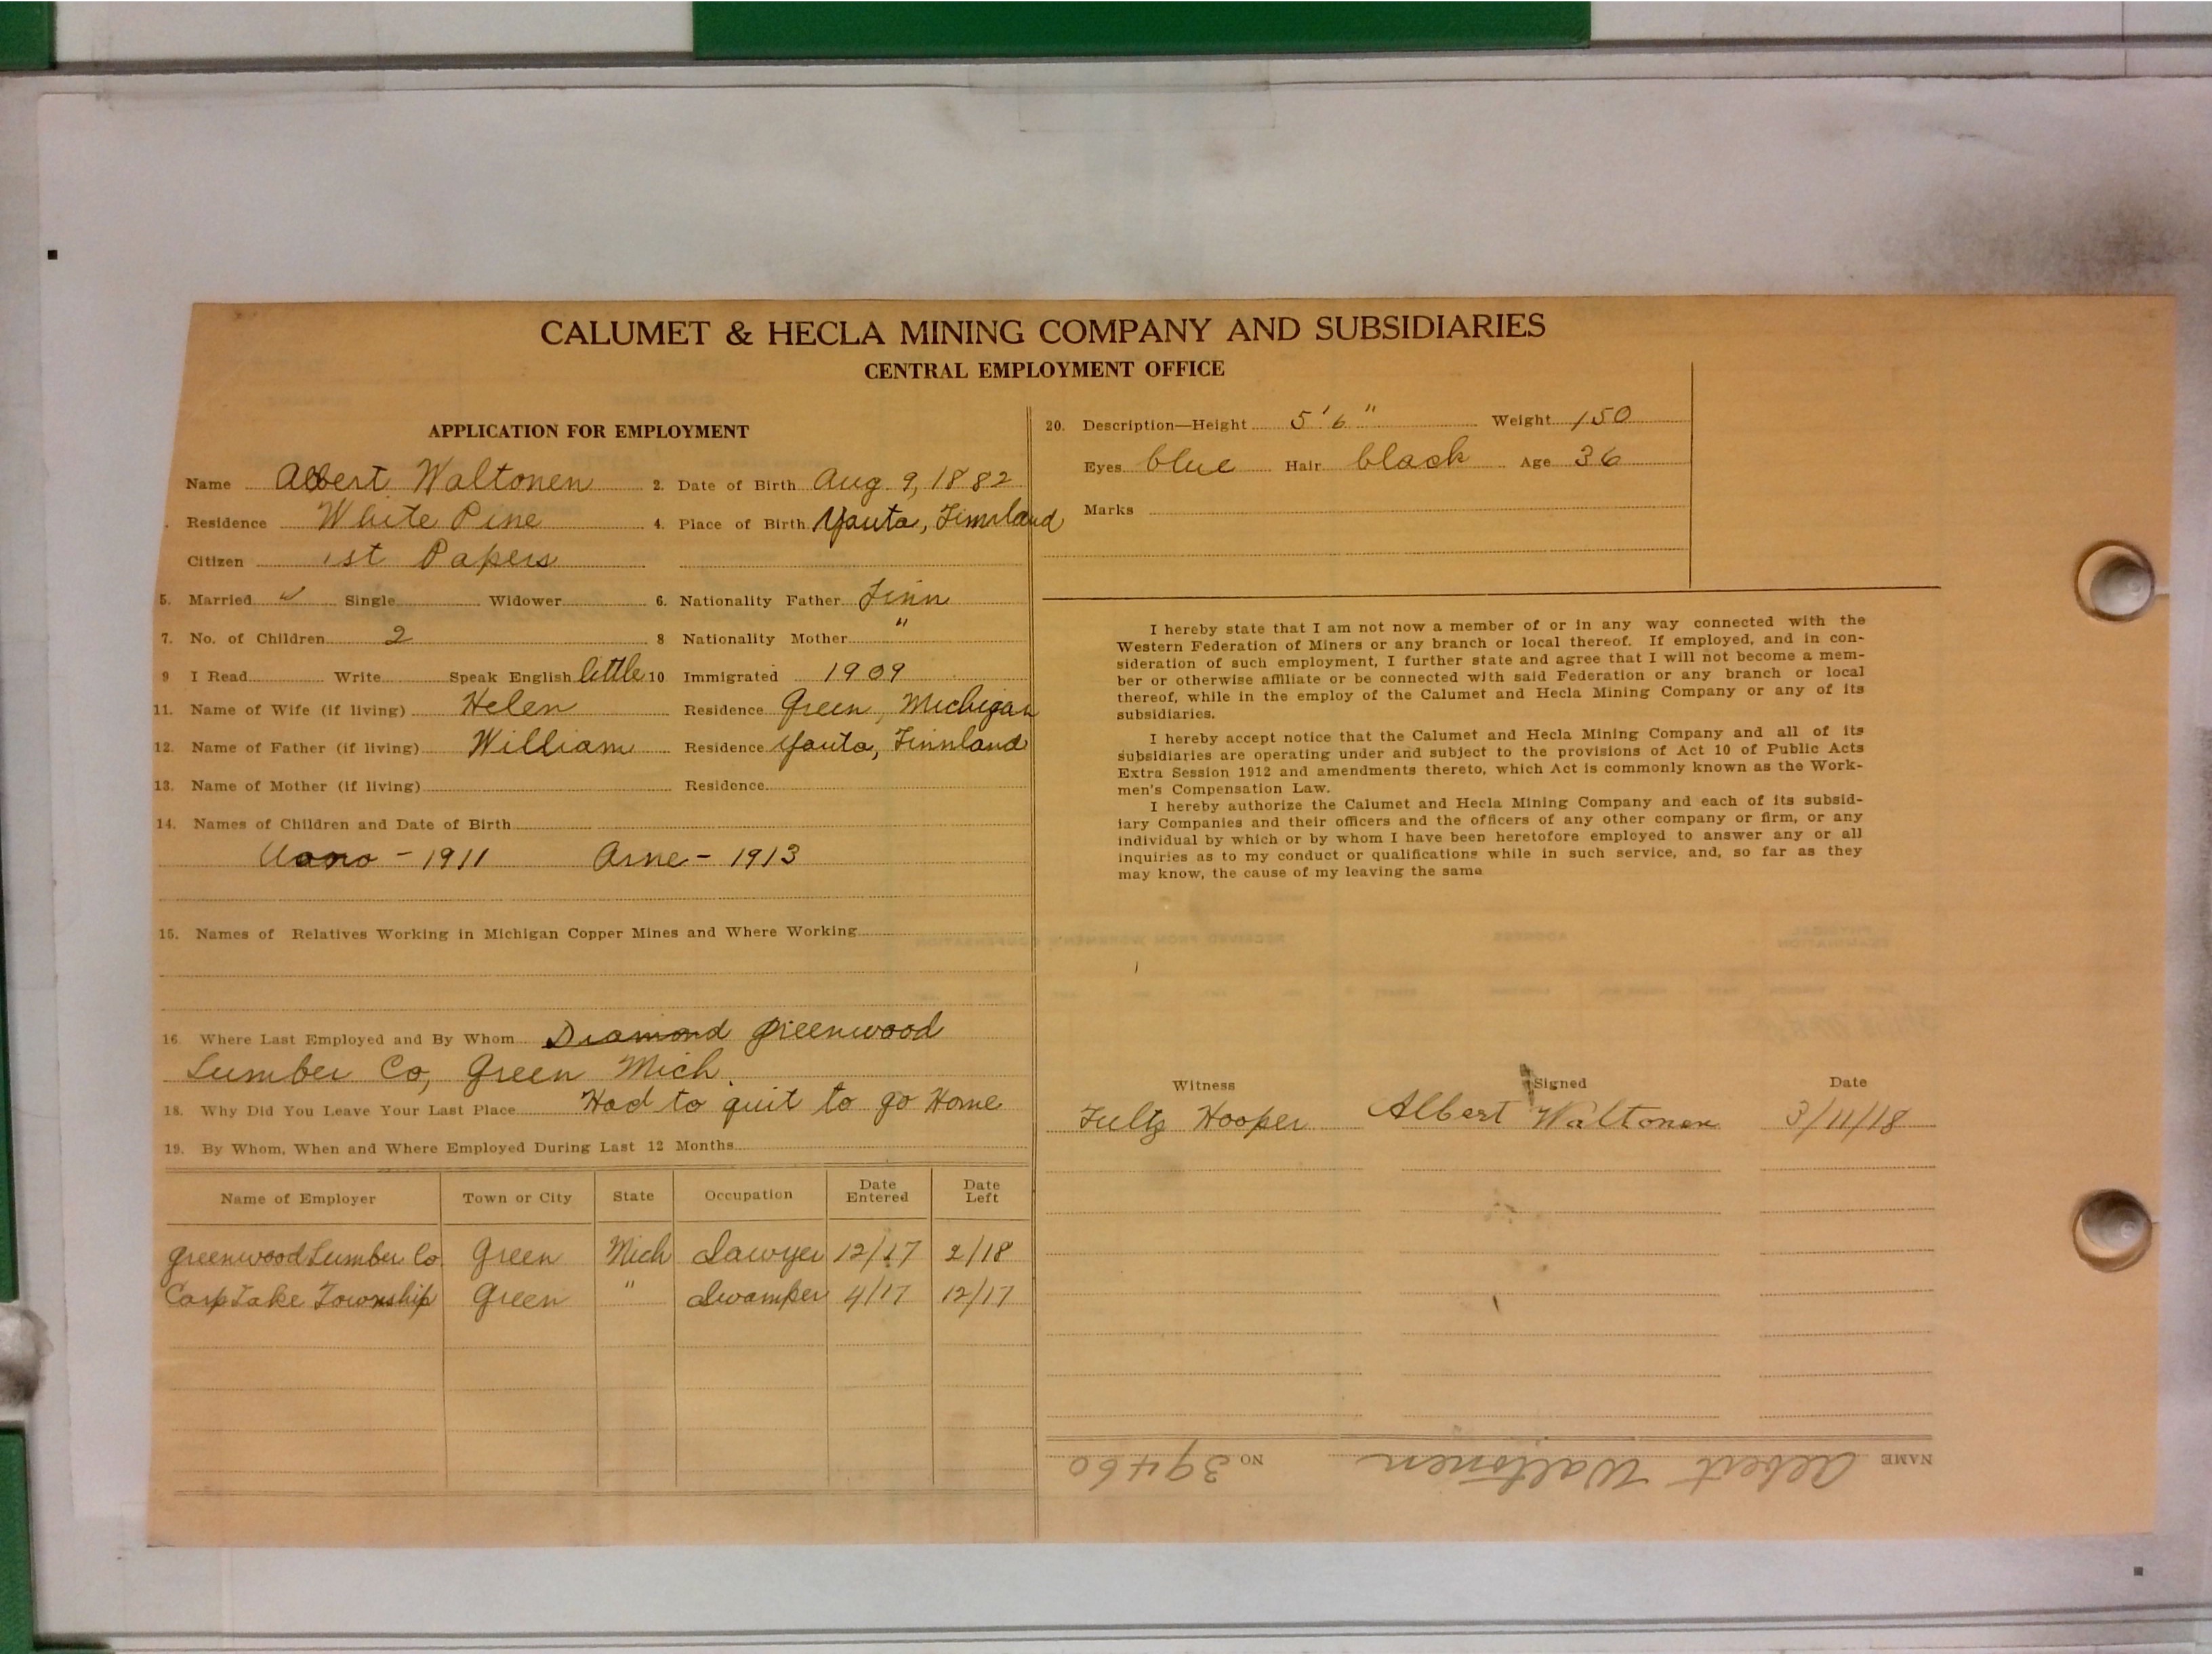 CALUMET & HECLA MINING COMPANY AND SUBSIDIARIES
CENTRAL EMPLOYMENT OFFICE
APPLICATION FOR EMPLOYMENT
Name Albert Waltonen 2. Date of Birth Aug 9, 1882
Residence White Pine 4. Place of Birth Yauta, Finnland
Citizen 1st Papers
5. Married ✓ Single Widower 6. Nationality Father Finn
7. No. of Children 2 8 Nationality Mother "
9 I Read Write Speak English little 10 Immigrated 1909
11. Name of Wife (if living) Helen Residence Green, Michigan
12. Name of Father (if living) William Residence Yauta, Finnland
13. Name of Mother (if living) Residence
14. Names of Children and Date of Birth
- 1911 Arne - 1913
15. Names of Relatives Working in Michigan Copper Mines and Where Working
16 Where Last Employed and By Whom Diamond Greenwood
Lumber Co, Green Mich.
18. Why Did You Leave Your Last Place Had to quit to go Home
19. By Whom, When and Where Employed During Last 12 Months
Name of Employer Town or City State Occupation Date Entered Date Left
Greenwood Lumber Co Green Mich Sawyer 12/17 2/18
Carp Lake Township Green " Swamper 4/17 12/17
20. Description—Height 5'6" Weight 150
Eyes blue Hair black Age 36
Marks
I hereby state that I am not now a member of or in any way connected with the
Western Federation of Miners or any branch or local thereof. If employed, and in con-
sideration of such employment, I further state and agree that I will not become a mem-
ber or otherwise affiliate or be connected with said Federation or any branch or local
thereof, while in the employ of the Calumet and Hecla Mining Company or any of its
subsidiaries.
I hereby accept notice that the Calumet and Hecla Mining Company and all of its
subsidiaries are operating under and subject to the provisions of Act 10 of Public Acts
Extra Session 1912 and amendments thereto, which Act is commonly known as the Work-
men's Compensation Law.
I hereby authorize the Calumet and Hecla Mining Company and each of its subsid-
iary Companies and their officers and the officers of any other company or firm, or any
individual by which or by whom I have been heretofore employed to answer any or all
inquiries as to my conduct or qualifications while in such service, and, so far as they
may know, the cause of my leaving the same
Witness Signed Date
Hooper Albert Waltonen 3/11/18
NAME Albert Waltonen NO 39460